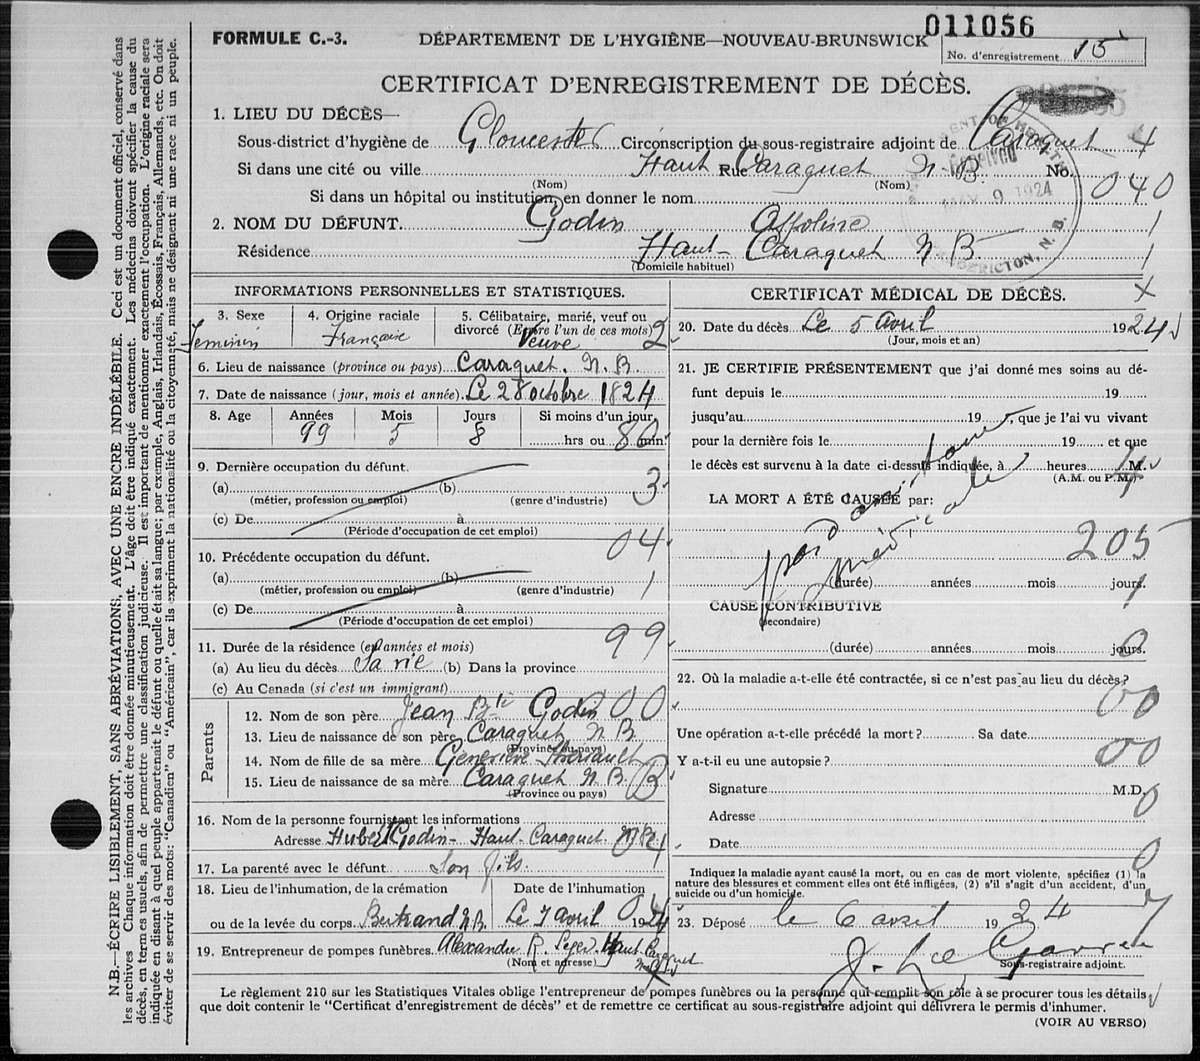 011056
FORMULE C.-3. DÉPARTEMENT DE L'HYGIÈNE—NOUVEAU-BRUNSWICK
No. d'enregistrement 15
CERTIFICAT D'ENREGISTREMENT DE DÉCÈS.
1. LIEU DU DÉCÈS—
Sous-district d'hygiène de Gloucester Circonscription du sous-registraire adjoint de Caraquet 4
Si dans une cité ou ville Haut Rue Caraquet N-B. No.
(Nom) (Nom) 040
Si dans un hôpital ou institution, en donner le nom
MAY 9 1924
FREDERICTON, N. B.
2. NOM DU DÉFUNT. Godin 1
Résidence Haut-Caraquet N B 1
(Domicile habituel)
INFORMATIONS PERSONNELLES ET STATISTIQUES.
3. Sexe 4. Origine raciale 5. Célibataire, marié, veuf ou divorcé (Entre l'un de ces mots)
Feminin Française Veuve 2
6. Lieu de naissance (province ou pays) Caraquet. N. B.
7. Date de naissance (jour, mois et année) Le 28 octobre 1824
8. Age Années Mois Jours Si moins d'un jour,
99 5 8 hrs ou min.
9. Dernière occupation du défunt.
(a) (b) 3
(métier, profession ou emploi) (genre d'industrie)
(c) De à
(Période d'occupation de cet emploi)
04
10. Précédente occupation du défunt.
(a) (b) 1
(métier, profession ou emploi) (genre d'industrie)
(c) De à
(Période d'occupation de cet emploi)
99
11. Durée de la résidence (en années et mois)
(a) Au lieu du décès Sa vie (b) Dans la province
(c) Au Canada (si c'est un immigrant)
Parents
12. Nom de son père Jean Bte Godin 00
13. Lieu de naissance de son père Caraquet N B.
(Province ou pays)
14. Nom de fille de sa mère Geneviève Theriault
15. Lieu de naissance de sa mère Caraquet N. B.
(Province ou pays)
16. Nom de la personne fournissant les informations
Adresse Hubert Godin - Haut-Caraquet
17. La parenté avec le défunt Son fils.
18. Lieu de l'inhumation, de la crémation Date de l'inhumation
ou de la levée du corps. Bertrand N.B. Le 7 avril 1924
19. Entrepreneur de pompes funèbres. R. Haut-Caraquet
(Nom et adresse)
CERTIFICAT MÉDICAL DE DÉCÈS.
20. Date du décès Le 5 avril 1924
(Jour, mois et an)
21. JE CERTIFIE PRÉSENTEMENT que j'ai donné mes soins au dé-
funt depuis le 19
jusqu'au 19, que je l'ai vu vivant
pour la dernière fois le 19 et que
le décès est survenu à la date ci-dessus indiquée, à heures M.
(A.M. ou P.M.)
LA MORT A ÉTÉ CAUSÉE par:
médicale
205
(durée) années mois jours.
CAUSE CONTRIBUTIVE
(secondaire)
(durée) années mois jours.
22. Où la maladie a-t-elle été contractée, si ce n'est pas au lieu du décès?
00
Une opération a-t-elle précédé la mort? Sa date
Y a-t-il eu une autopsie? 00
Signature M.D.
Adresse 0
Date 0
Indiquez la maladie ayant causé la mort, ou en cas de mort violente, spécifiez (1) la
nature des blessures et comment elles ont été infligées, (2) s'il s'agit d'un accident, d'un
suicide ou d'un homicide.
23. Déposé le 6 avril 1924
Sous-registraire adjoint.
Le règlement 210 sur les Statistiques Vitales oblige l'entrepreneur de pompes funèbres ou la personne qui remplit son rôle à se procurer tous les détails
que doit contenir le "Certificat d'enregistrement de décès" et de remettre ce certificat au sous-registraire adjoint qui délivrera le permis d'inhumer.
(VOIR AU VERSO)
N.B.—ÉCRIRE LISIBLEMENT, SANS ABRÉVIATIONS, AVEC UNE ENCRE INDÉLÉBILE. Ceci est un document officiel, conservé dans
les archives Chaque information doit être donnée minutieusement. L'âge doit être indiqué exactement. Les médecins doivent spécifier la cause du
décès, en termes usuels, afin de permettre une classification judicieuse. Il est important de mentionner exactement l'occupation. L'origine raciale sera
indiquée en disant à quel peuple appartenait le défunt ou quelle était sa langue; par exemple, Anglais, Irlandais, Écossais, Français, Allemands, etc. On doit
éviter de se servir des mots: "Canadien" ou "Américain", car ils expriment la nationalité ou la citoyenneté, mais ne désignent ni une race ni un peuple.